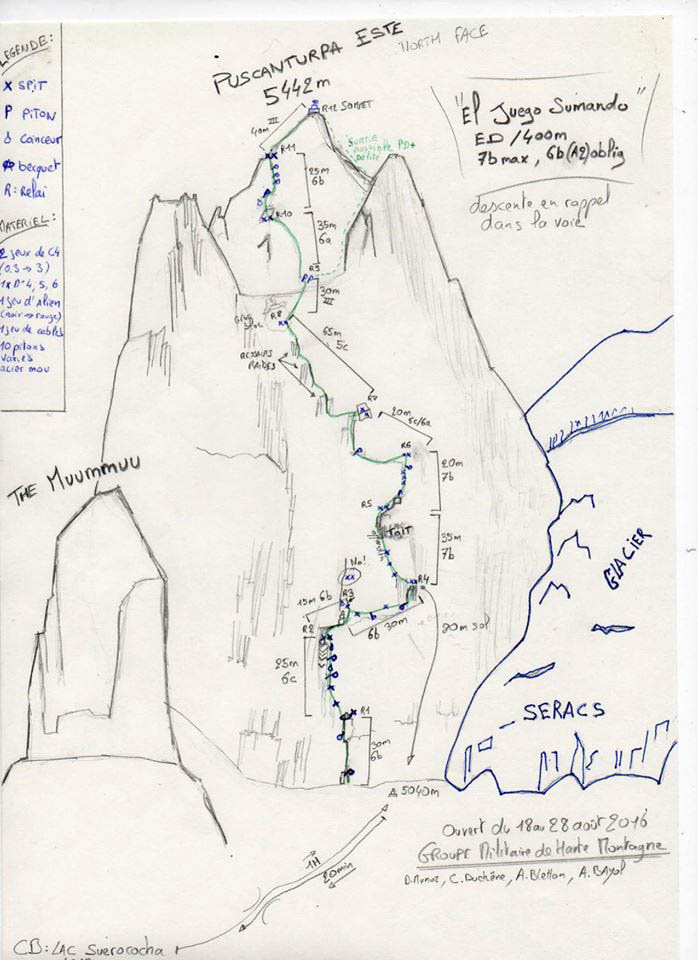 LEGENDE:
x SPiT
P PiTON
coinceur
becquet
R: Relai
MATERIEL:
2 jeux de C4
(0.3 → 3)
1x N°4, 5, 6
1 jeu d'Alien
(noir → rouge)
1 jeu de cables
10 pitons
variés
acier mou
PUSCANTURPA ESTE
NORTH FACE
5442m
"El Juego Sumando"
ED / 400m
7b max, 6b (A2) oblig
descente en rappel
dans la voie
R12 SOMMET
III
40m
SORTIE
possible PD+
R11
25m
6b
R10
35m
6a
R9
30m
III
R8
65m
5c
RESSAUTS
RAIDES
R7
20m
5c/6a
R6
20m
7b
R5
TOIT
35m
7b
No!
R4
15m 6b
R3
6b 30m
90m sol
R2
25m
6c
R1
30m
6b
THE MUUMMUU
GLACIER
SERACS
5040m
1H
20min
CB: LAC SUEROCOCHA
Ouvert du 18 au 28 août 2016
GROUPE Militaire de Haute Montagne
D. Munoz, C. Duchêne, A. Bletton, A. BAyol